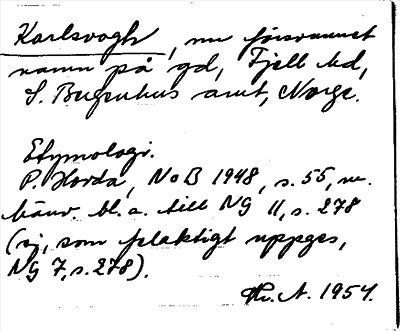 Karlsvogh, nu försvunnet
namn på gd, Fjell hd,
S. Bergenhus amt, Norge.
Etymologi.
P. Hovda, NoB 1948, s. 55, m.
hänv. bl. a. till NG 11, s. 278
(ej, som felaktigt uppges,
NG 7, s. 278).
A. 1954.